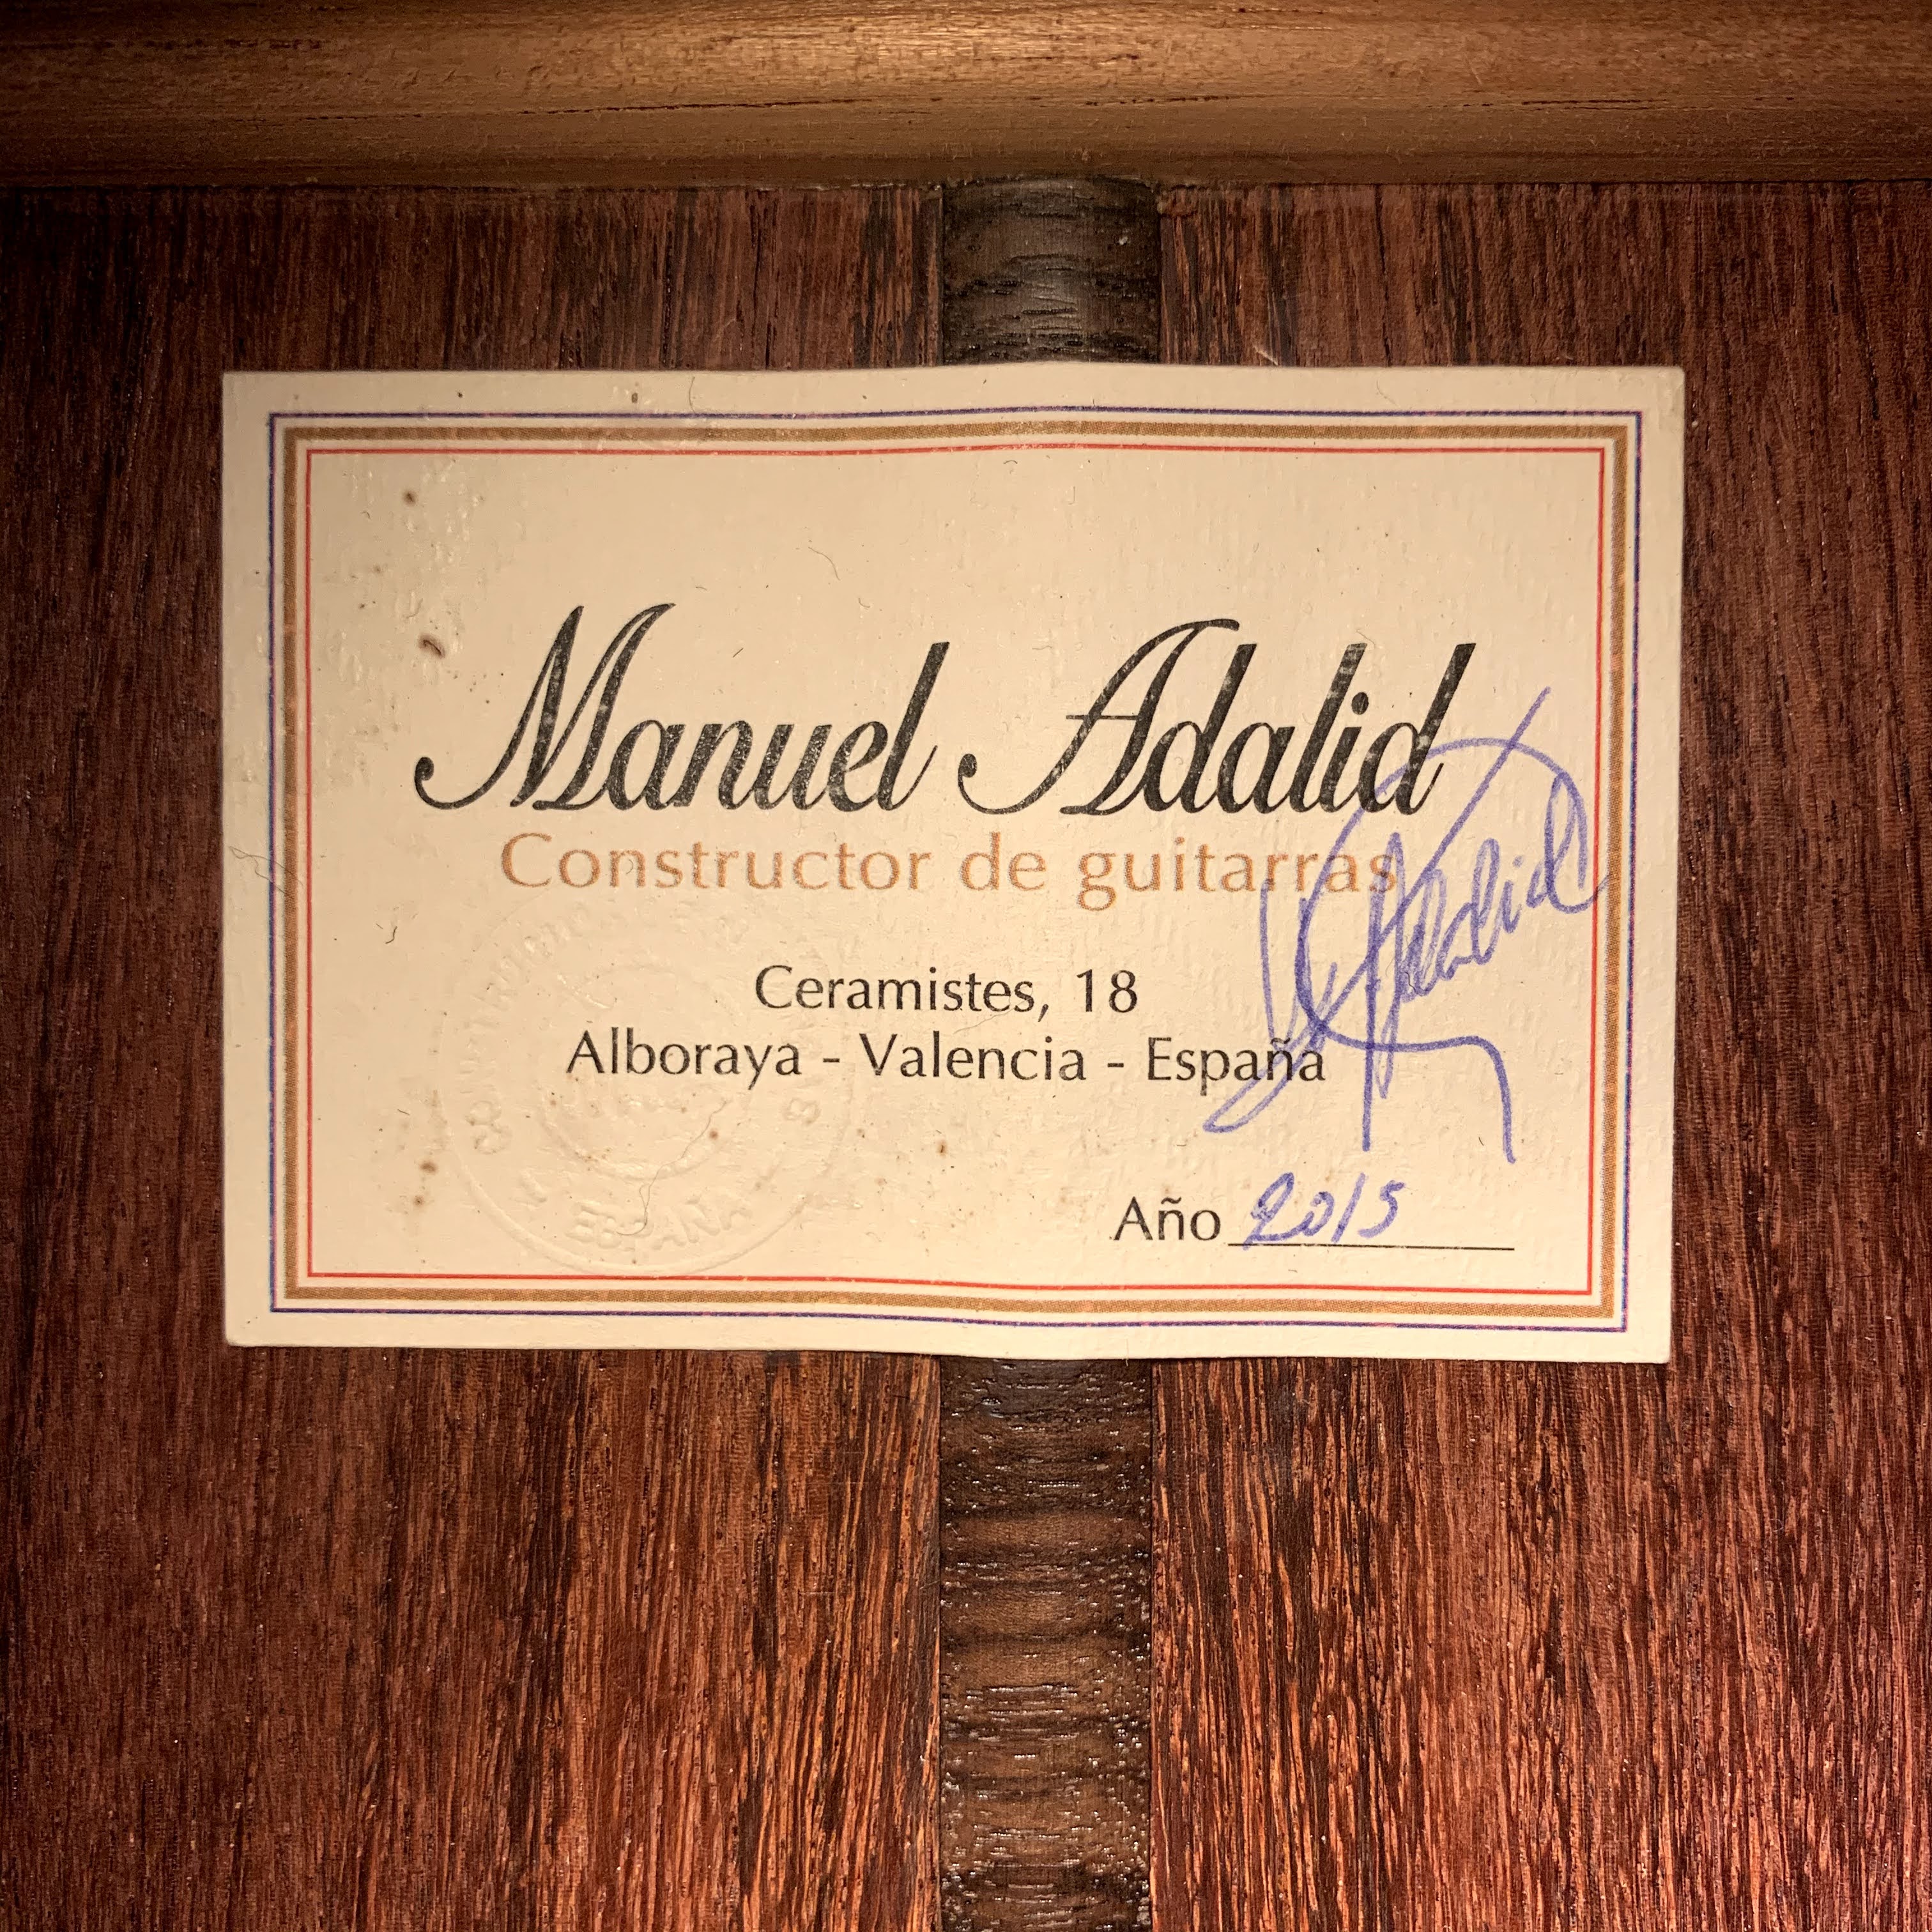 Manuel Adalid
Constructor de guitarras
Adalid
Ceramistes, 18
Alboraya - Valencia - España
Año 2015
ESPAÑA